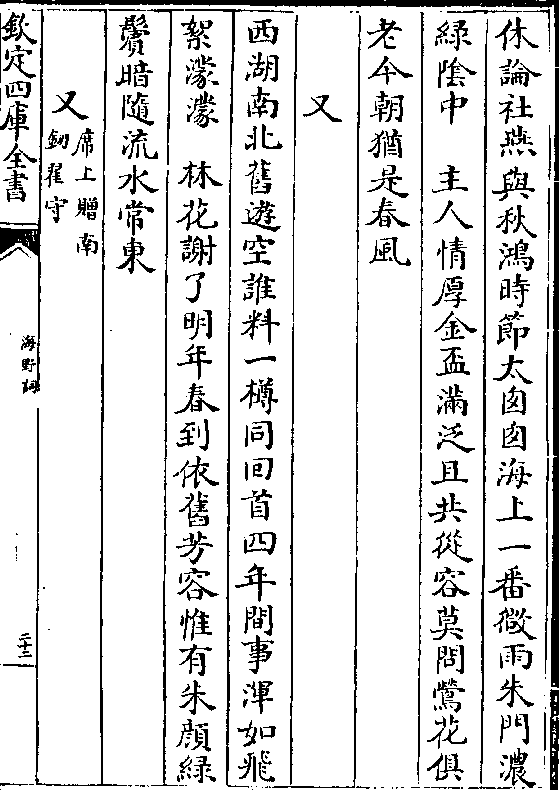 休論社燕與秋鴻時節太匆匆海上一番微雨朱門濃
綠陰中　主人情厚金盃滿泛且共從容莫問鶯花俱
老今朝猶是春風
又
西湖南北舊遊空誰料一樽同回首四年間事渾如飛
絮濛濛　林花謝了明年春到依舊芳容惟有朱顔綠
鬢暗隨流水常東
又席上贈南劒翟守
欽定四庫全書
海野詞
二十二